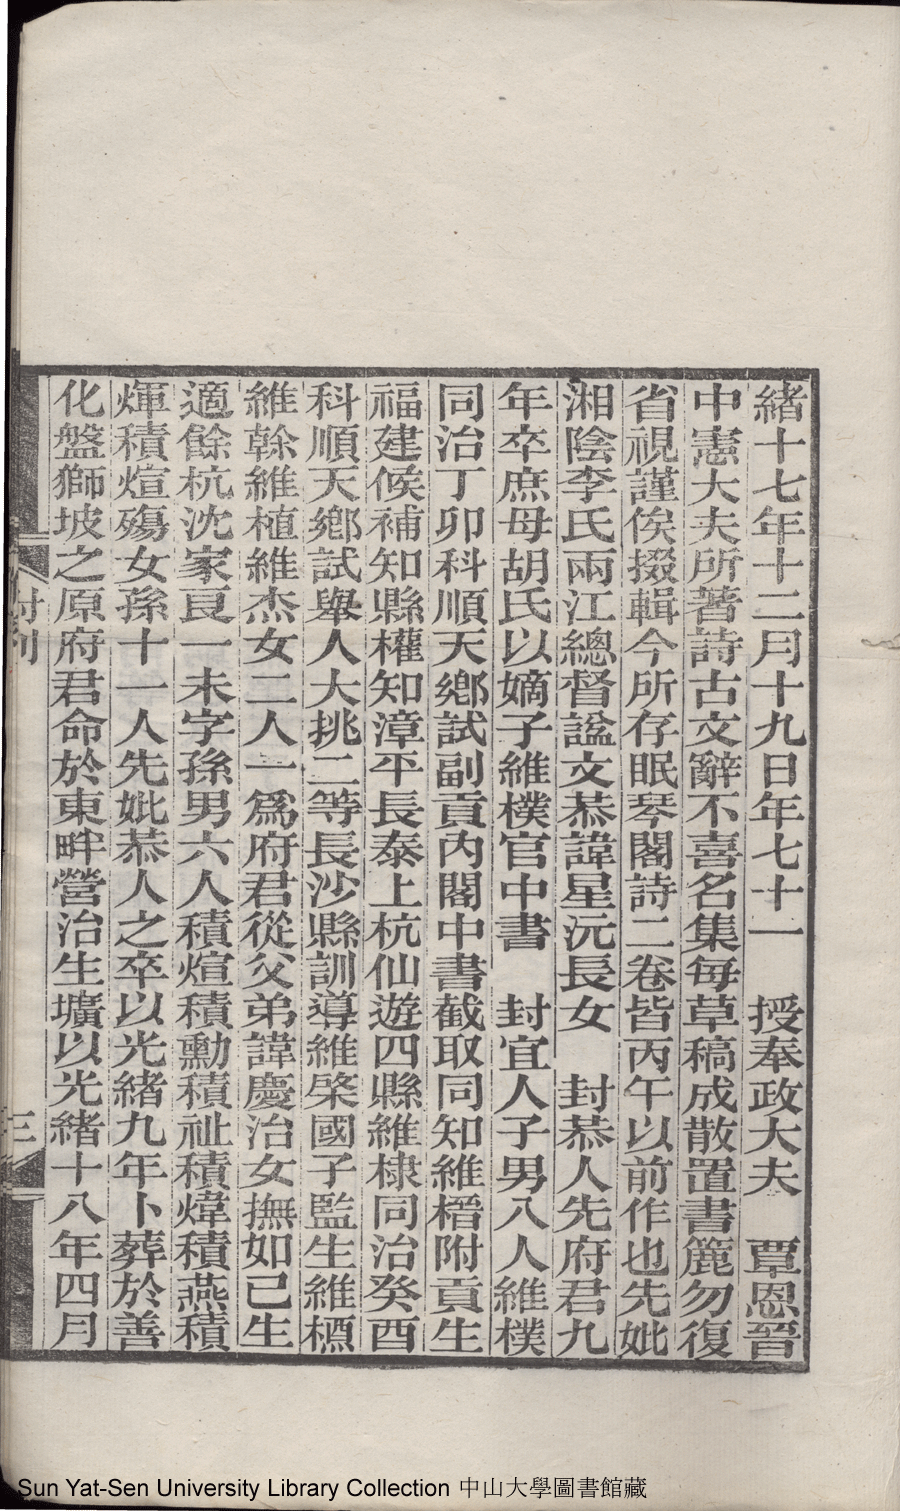 緒十七年十二月十九日年七十一　授奉政大夫　覃恩晉
中憲大夫所著詩古文辭不喜名集每草稿成散置書簏勿復
省視謹俟掇輯今所存眠琴閣詩二卷皆丙午以前作也先妣
湘陰李氏兩江總督諡文恭諱星沅長女　封恭人先府君九
年卒庶母胡氏以嫡子維樸官中書　封宜人子男八人維樸
同治丁卯科順天鄉試副貢內閣中書截取同知維榗附貢生
福建候補知縣權知漳平長泰上杭仙遊四縣維棣同治癸酉
科順天鄉試舉人大挑二等長沙縣訓導維棨國子監生維標
維榦維植維杰女二人一為府君從父弟諱慶治女撫如己生
適餘杭沈家良一未字孫男六人積煊積勳積祉積煒積燕積
煇積煊殤女孫十一人先妣恭人之卒以光緒九年卜葬於善
化盤獅坡之原府君命於東畔營治生壙以光緒十八年四月
三
Sun Yat-Sen University Library Collection 中山大學圖書館藏